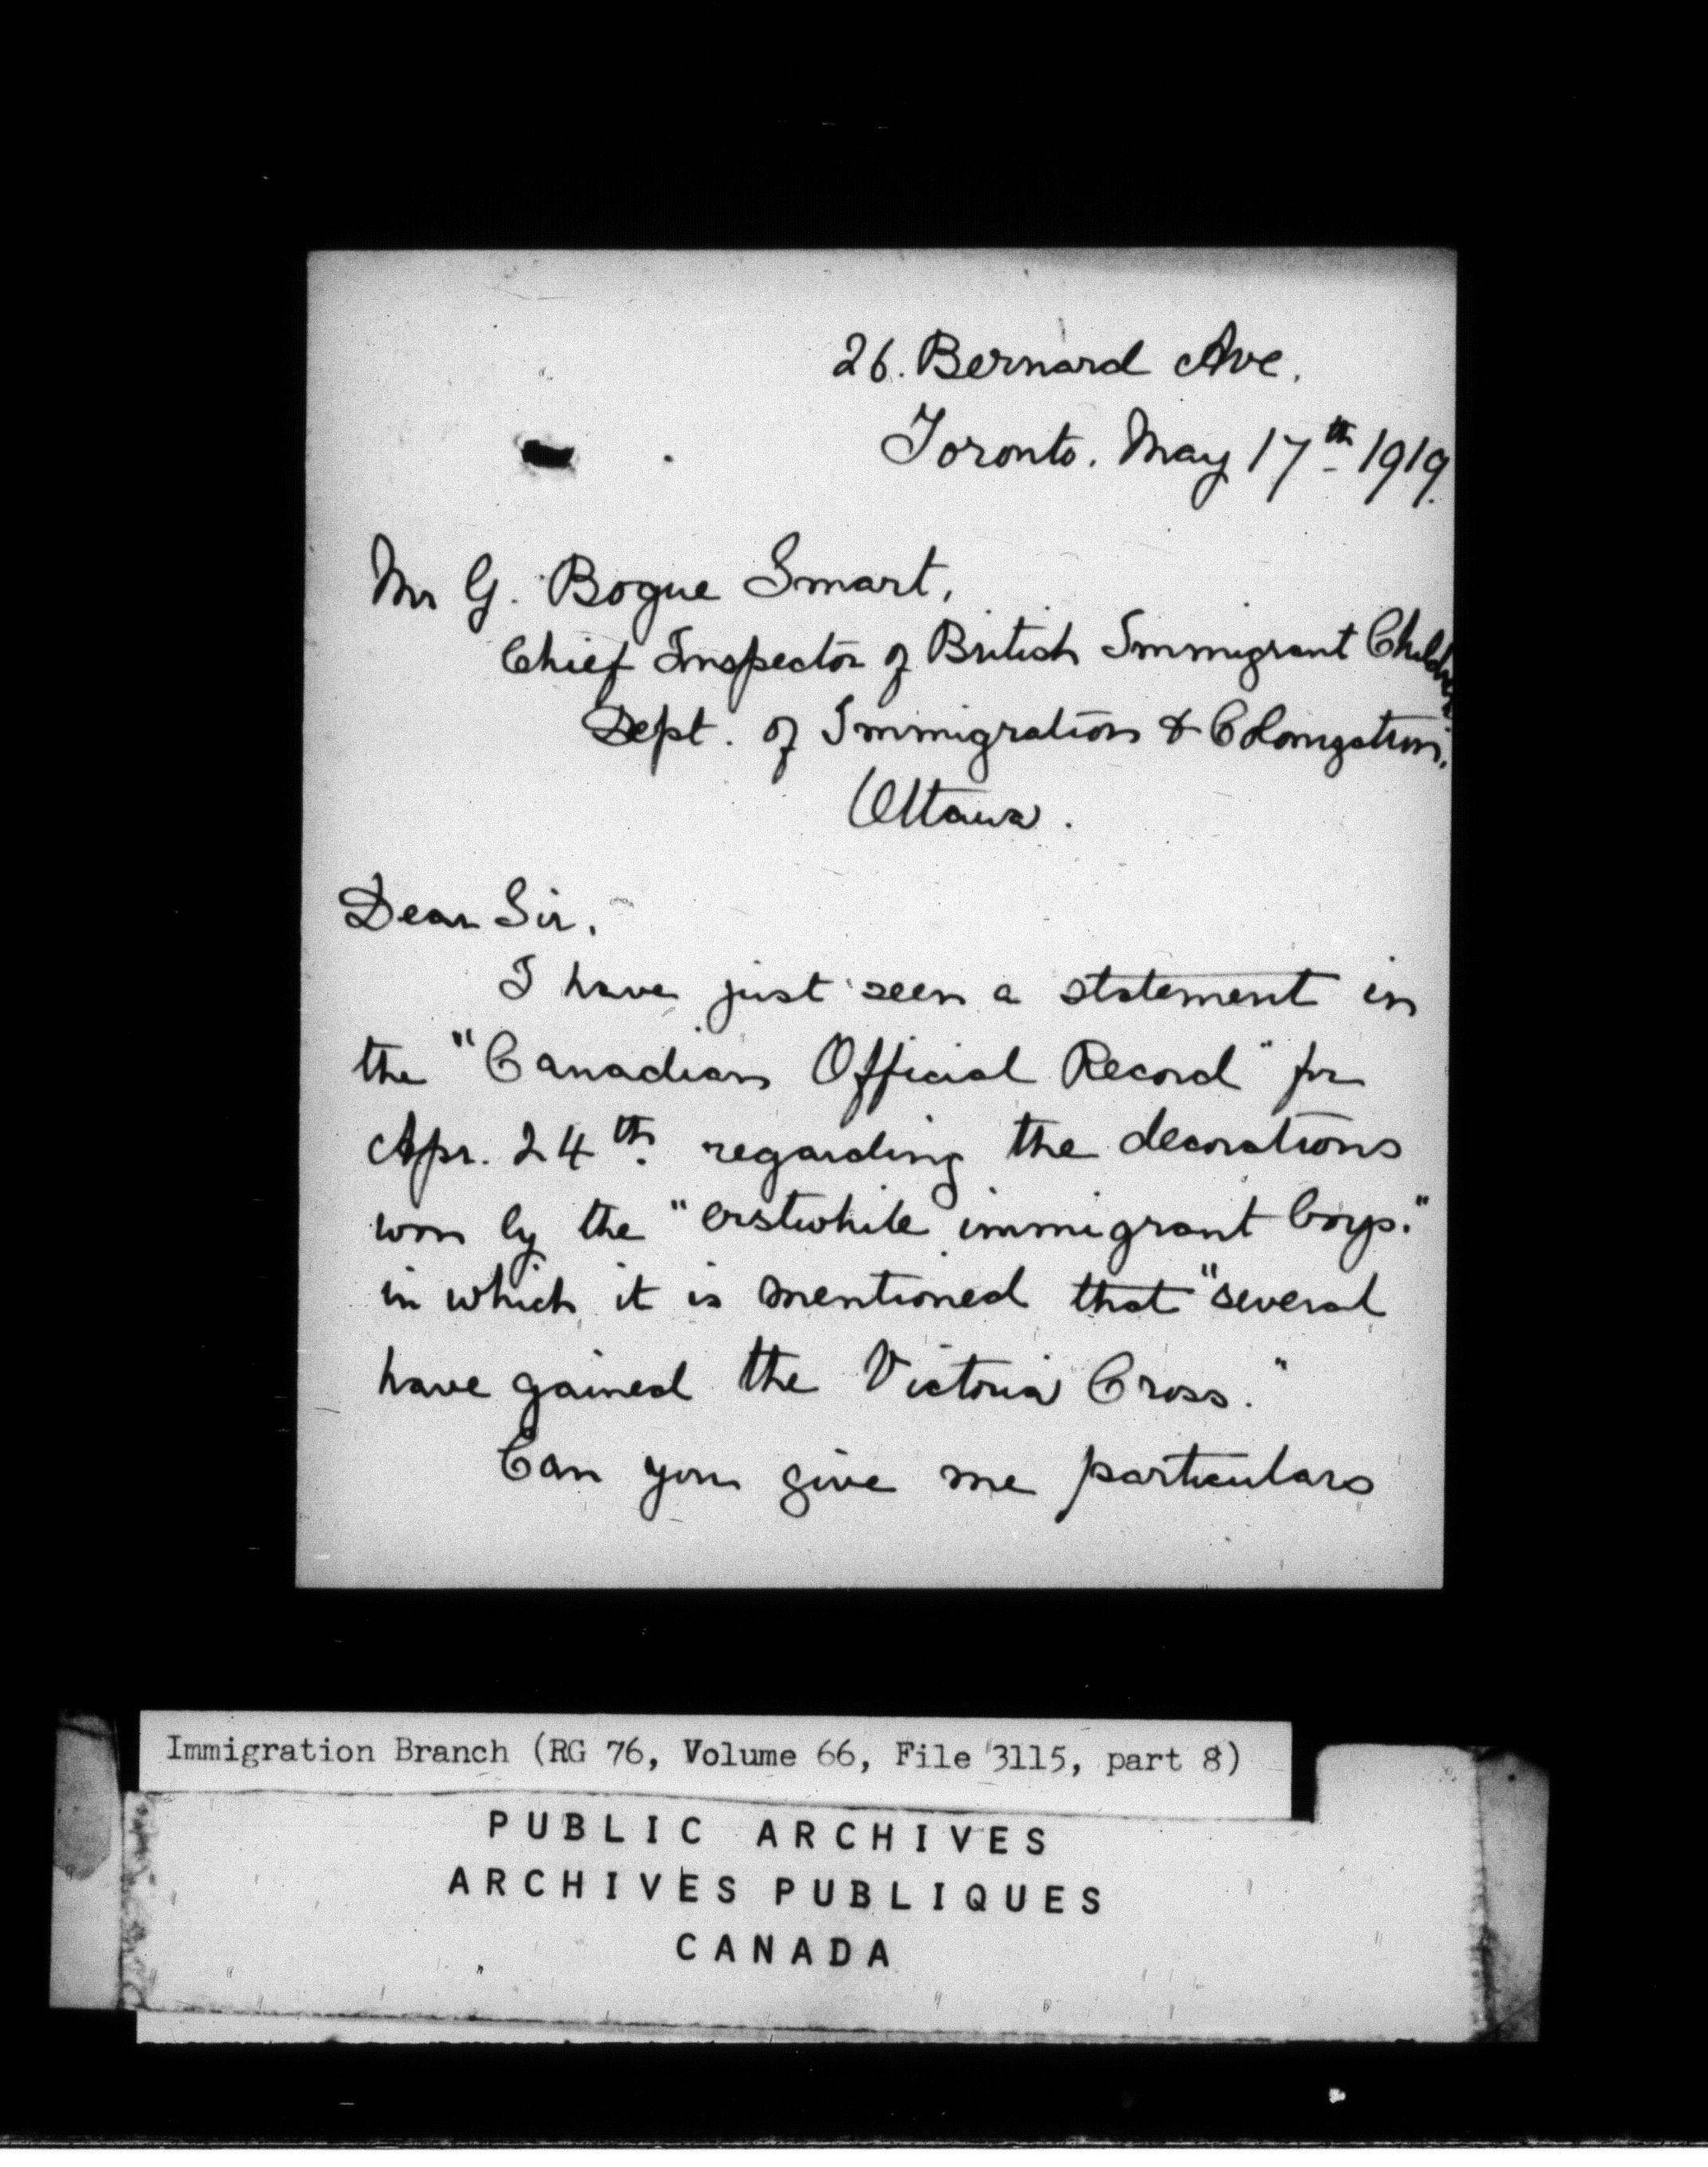 26. Bernard Ave.
Toronto. May 17th 1919.
Mr G. Bogue Smart,
Chief Inspector of British Immigrant Children
Dept. of Immigration & Colonization.
Ottawa.
Dear Sir.
I have just seen a statement in
the "Canadian Official Record" for
Apr. 24th. regarding the decorations
won by the "erstwhile immigrant boys."
in which it is mentioned that "several
have gained the Victoria Cross."
Can you give me particulars
Immigration Branch (RG 76, Volume 66, File 3115, part 8)
PUBLIC ARCHIVES
ARCHIVES PUBLIQUES
CANADA